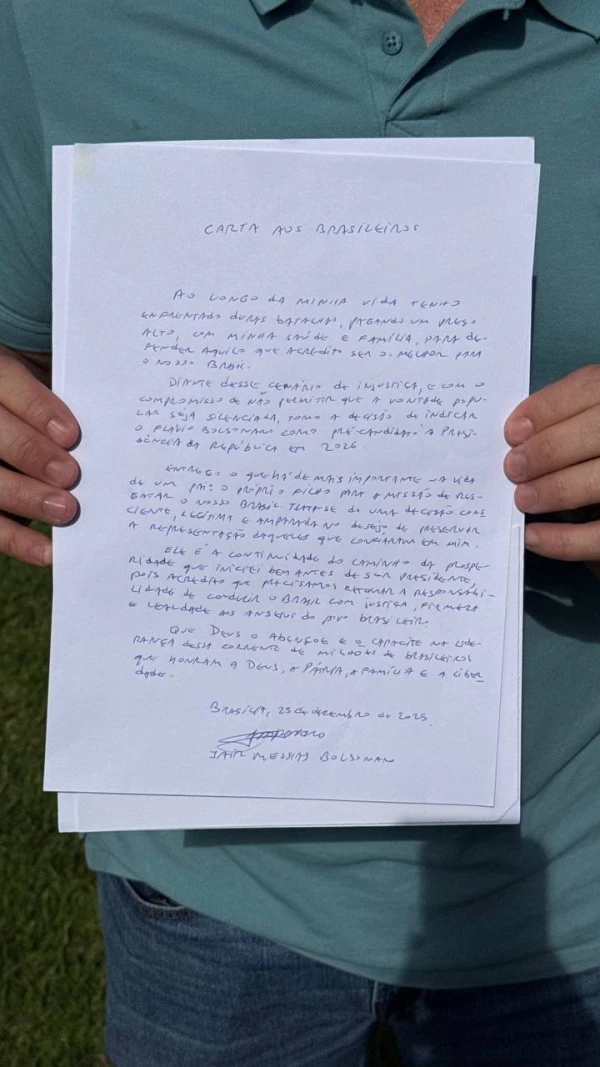 CARTA AOS BRASILEIROS
AO LONGO DA MINHA VIDA TENHO
ENFRENTADO DURAS BATALHAS, PAGANDO UM PREÇO
ALTO, COM MINHA SAÚDE E FAMÍLIA, PARA DE-
FENDER AQUILO QUE ACREDITO SER O MELHOR PARA
O NOSSO BRASIL.
DIANTE DESSE CENÁRIO DE INJUSTIÇA, E COM O
COMPROMISSO DE NÃO PERMITIR QUE A VONTADE POPU-
LAR SEJA SILENCIADA, TOMO A DECISÃO DE INDICAR
O FLÁVIO BOLSONARO COMO PRÉ-CANDIDATO À PRESI-
DÊNCIA DA REPÚBLICA EM 2026.
ENTREGO O QUE HÁ DE MAIS IMPORTANTE NA VIDA
DE UM PAI: O PRÓPRIO FILHO PARA A MISSÃO DE RES-
GATAR O NOSSO BRASIL. TRATA-SE DE UMA DECISÃO CONS
CIENTE, LEGÍTIMA E AMPARADA NO DESEJO DE PRESERVAR
A REPRESENTAÇÃO DAQUELES QUE CONFIARAM EM MIM.
ELE É A CONTINUIDADE DO CAMINHO DA PROSPE-
RIDADE QUE INICIEI BEM ANTES DE SER PRESIDENTE,
POIS ACREDITO QUE PRECISAMOS RETOMAR A RESPONSABI-
LIDADE DE CONDUZIR O BRASIL COM JUSTIÇA, FIRMEZA
E LEALDADE AOS ANSEIOS DO POVO BRASILEIRO.
QUE DEUS O ABENÇOE E O CAPACITE NA LIDE-
RANÇA DESSA CORRENTE DE MILHÕES DE BRASILEIROS
QUE HONRAM A DEUS, A PÁTRIA, A FAMÍLIA E A LIBER
DADE.
BRASÍLIA, 25 de dezembro de 2025.
JAIR MESSIAS BOLSONARO